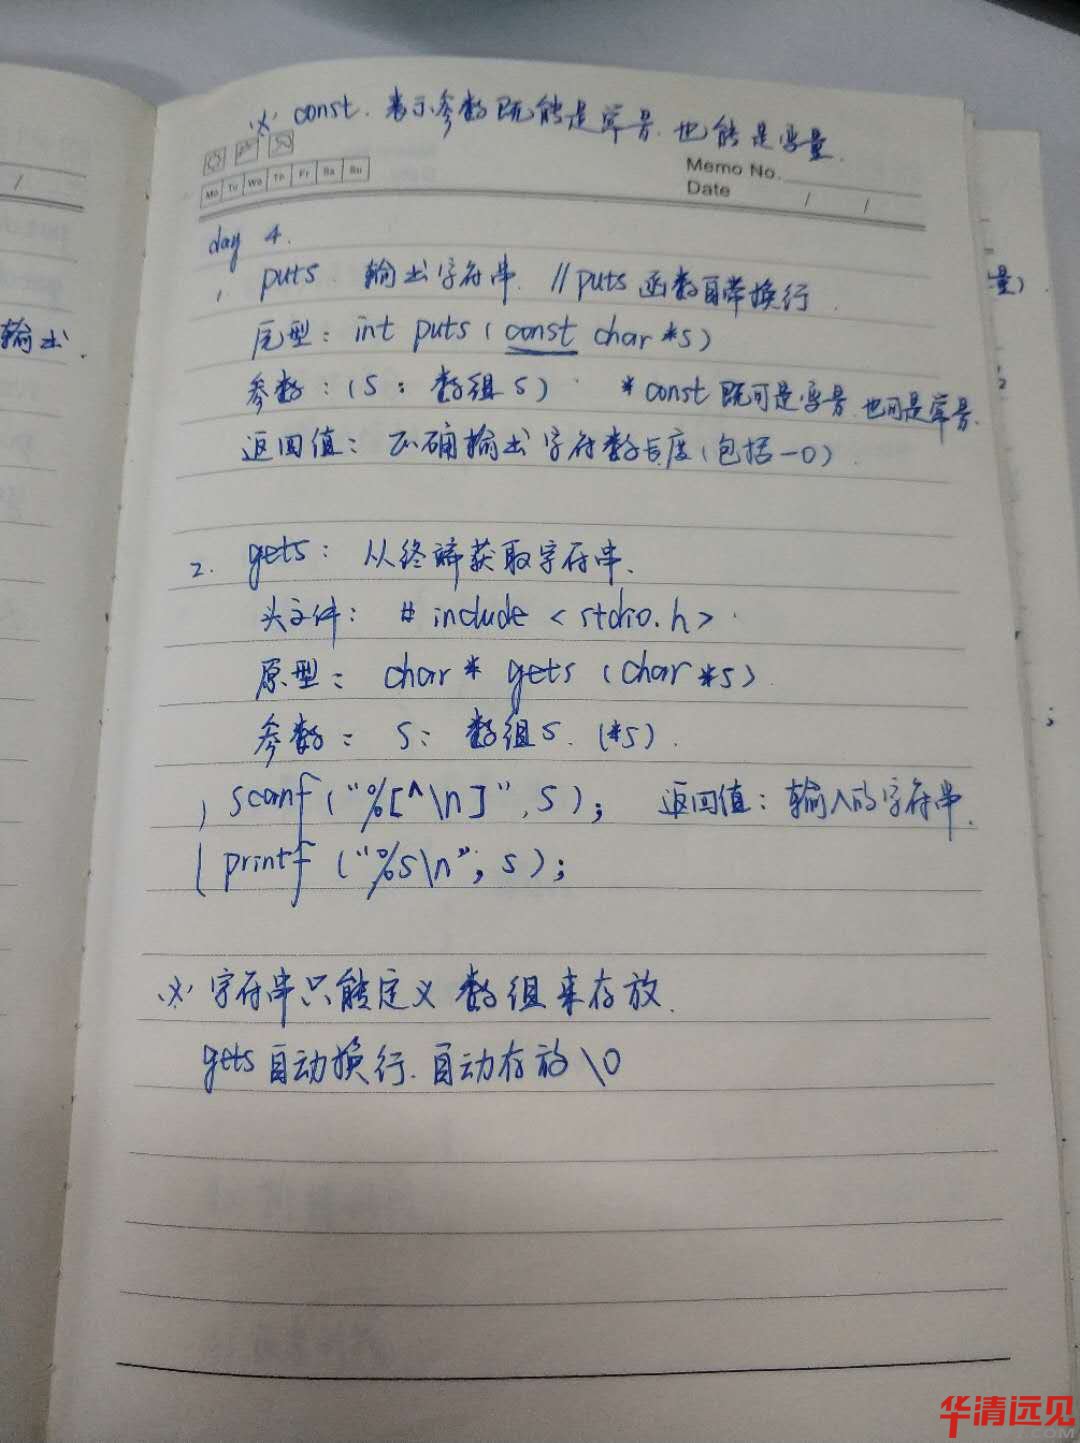 ※ const. 表示参数既能是常量.也能是变量.
Mo Tu We Th Fr Sa Su
Memo No.
Date / /
day 4.
1 puts 输出字符串. //puts函数自带换行.
原型: int puts (const char *s)
参数: (S: 数组s) * const既可是变量.也可是常量.
返回值: 正确输出字符数长度(包括-0).
2. gets: 从终端获取字符串.
头文件: # include < stdio.h>
原型: char* gets (char *s)
参数: s: 数组s. (*s).
scanf ("%[^\n]", s); 返回值: 输入的字符串.
printf ("%s\n", s);
※ 字符串只能定义数组来存放.
gets自动换行.自动存放\0
/
输出.
量)
;
华清远见